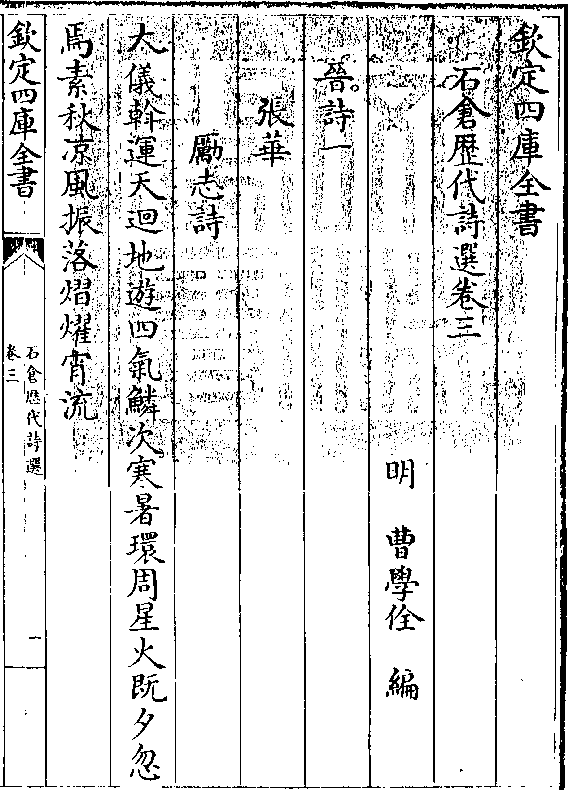 欽定四庫全書
石倉歷代詩選卷三
明 曹學佺 編
晉詩一
張華
勵志詩
大儀斡運天迴地遊四氣鱗次寒暑環周星火既夕忽
焉素秋凉風振落熠燿宵流
欽定四庫全書
石倉歷代詩選
卷三
一